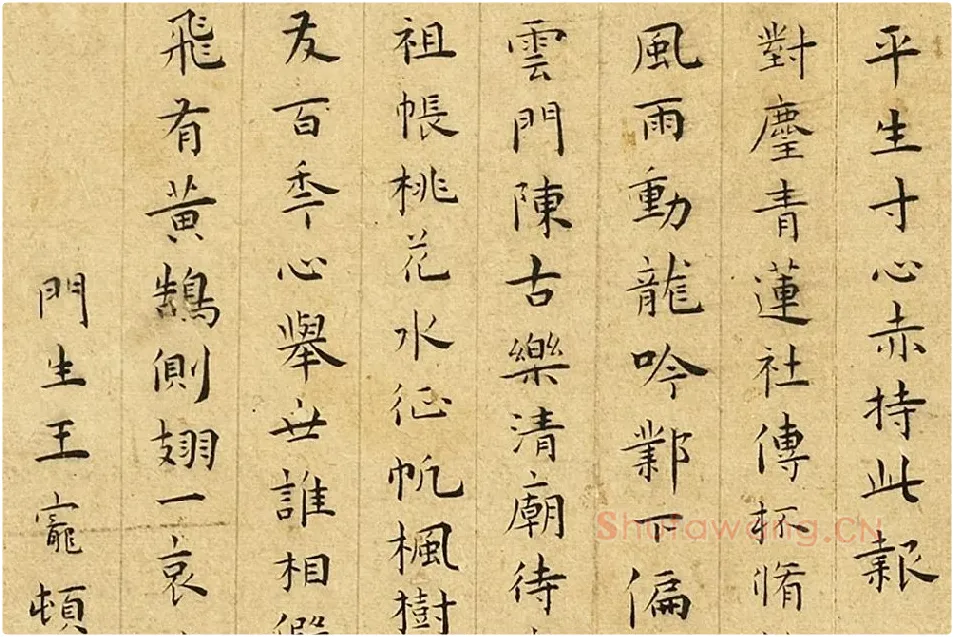 平生寸心赤持此報
對麈青蓮社傳杯脩
風雨動龍吟鄴下偏
雲門陳古樂清廟待
祖帳桃花水征帆楓樹
友百秊心舉世誰相
飛有黃鵠側翅一哀
門生王寵頓
Shufawang.CN